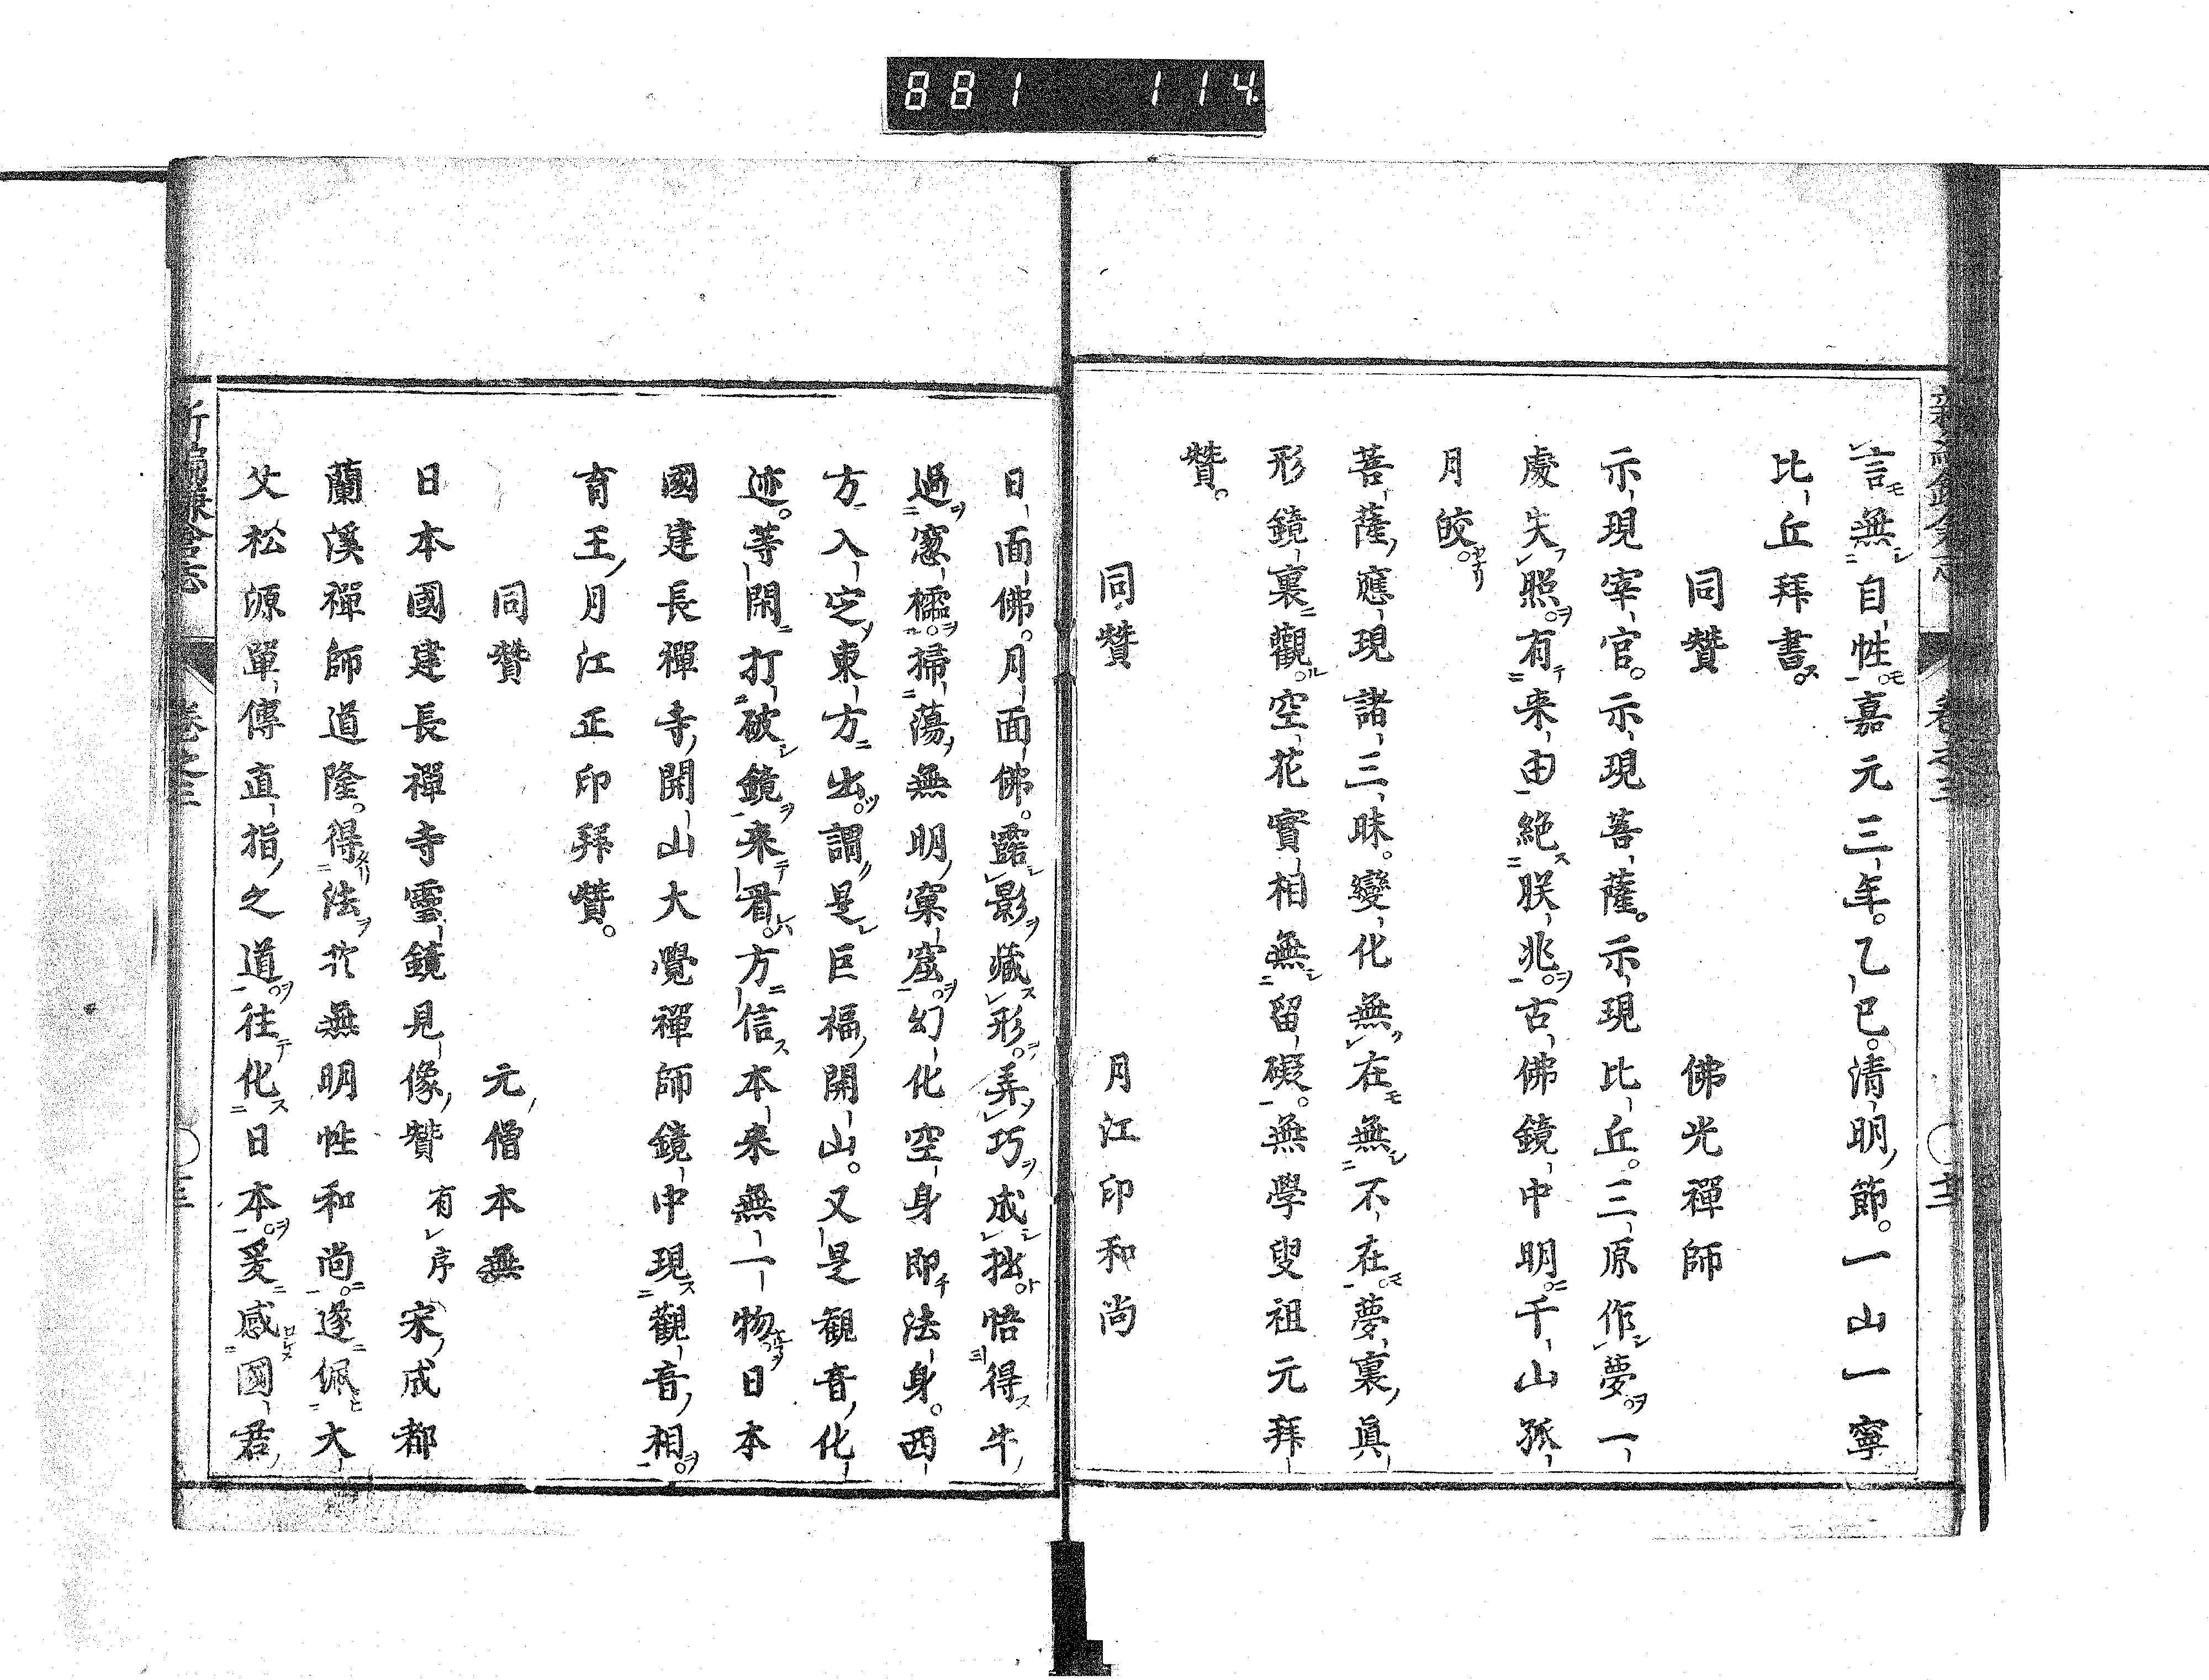 881 114
言無自性嘉元三年。乙巳。清明節。一山一寧
比丘拜書。
同贊 佛光禪師
示現宰官。示現菩薩。示現比丘。三原作夢一
處失照有来由絶朕兆古佛鏡中明千山孤
月皎。
菩薩應現諸三昧。變化無在無不在夢裏真
形鏡裏觀空花實相無留礙。無學叟祖元拜
贊。
同贊 月江印和尚
日面佛。月面佛。露影藏形。弄巧成拙悟得牛
過窓櫺掃蕩無明窠窟幻化空身即法身。西
方入定東方出謂是巨福開山。又是観音化
迹。等閑打破鏡来看方信本来無一物日本
國建長禪寺開山大覺禪師鏡中現觀音相
育王月江正印拜贊。
同贊 元僧本無
日本國建長禪寺靈鏡見像贊 有序 宋成都
蘭溪禪師道隆。得法於無明性和尚遂佩大
父松源單傳直指之道往化日本爰感國君
新編鎌倉志 卷之三